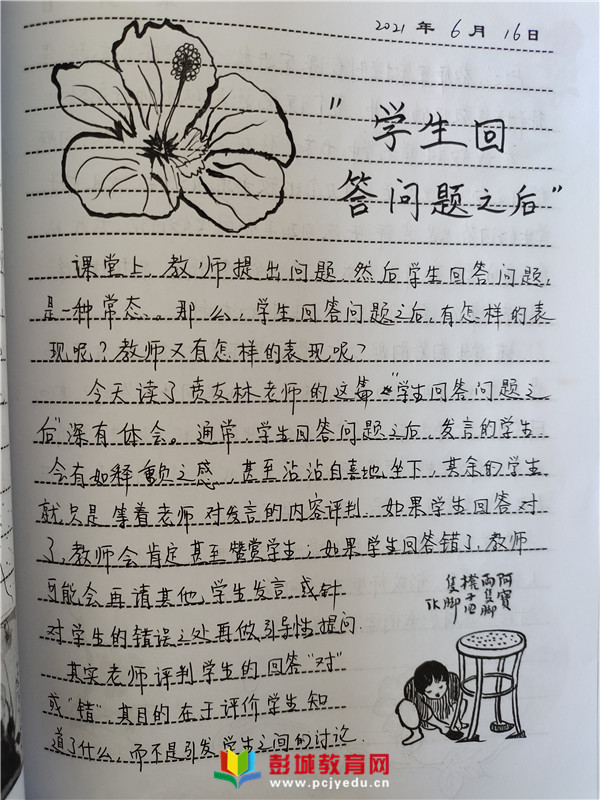 2021年6月16日
"学生回
答问题之后"
课堂上,教师提出问题,然后学生回答问题,
是一种常态。那么,学生回答问题之后,有怎样的表
现呢?教师又有怎样的表现呢?
今天读了贲友林老师的这篇"学生回答问题之
后"深有体会。通常,学生回答问题之后,发言的学生
会有如释重负之感,甚至沾沾自喜地坐下,其余的学生
就只是等着老师对发言的内容评判.如果学生回答对
了,教师会肯定甚至赞赏学生;如果学生回答错了,教师
可能会再请其他学生发言,或针
对学生的错误之处再做引导性提问.
其实老师评判学生的回答"对"
或"错",其目的在于评价学生知
道了什么,而不是引发学生之间的讨论.
阿寶
兩隻腳
櫈子四
隻腳
彭城教育网
www.pcjyedu.cn